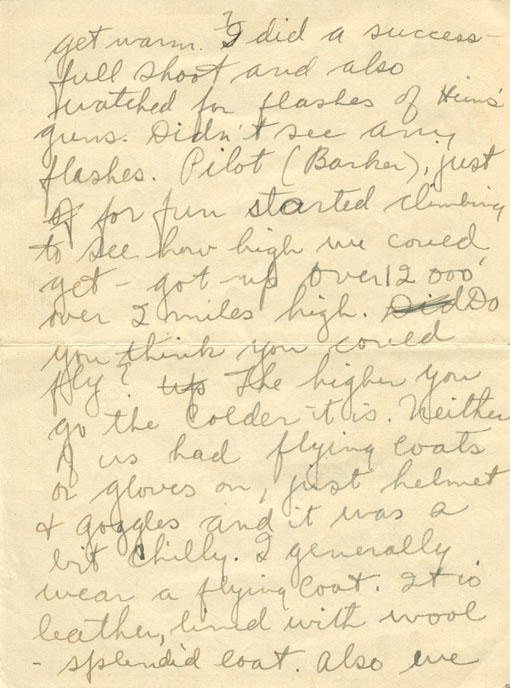 get warm. I did a success-
full shoot and also
watched for flashes of Huns'
guns. Didn't see any
flashes. Pilot (Barker), just
for fun started climbing
to see how high we could
get - got up over 12 000'
over 2 miles high. Did Do
you think you could
fly? Up The higher you
go the colder it is. Neither
of us had flying coats
or gloves on, just helmet
& goggles and it was a
bit chilly. I generally
wear a flying coat. It is
leather, lined with wool
- splendid coat. Also we